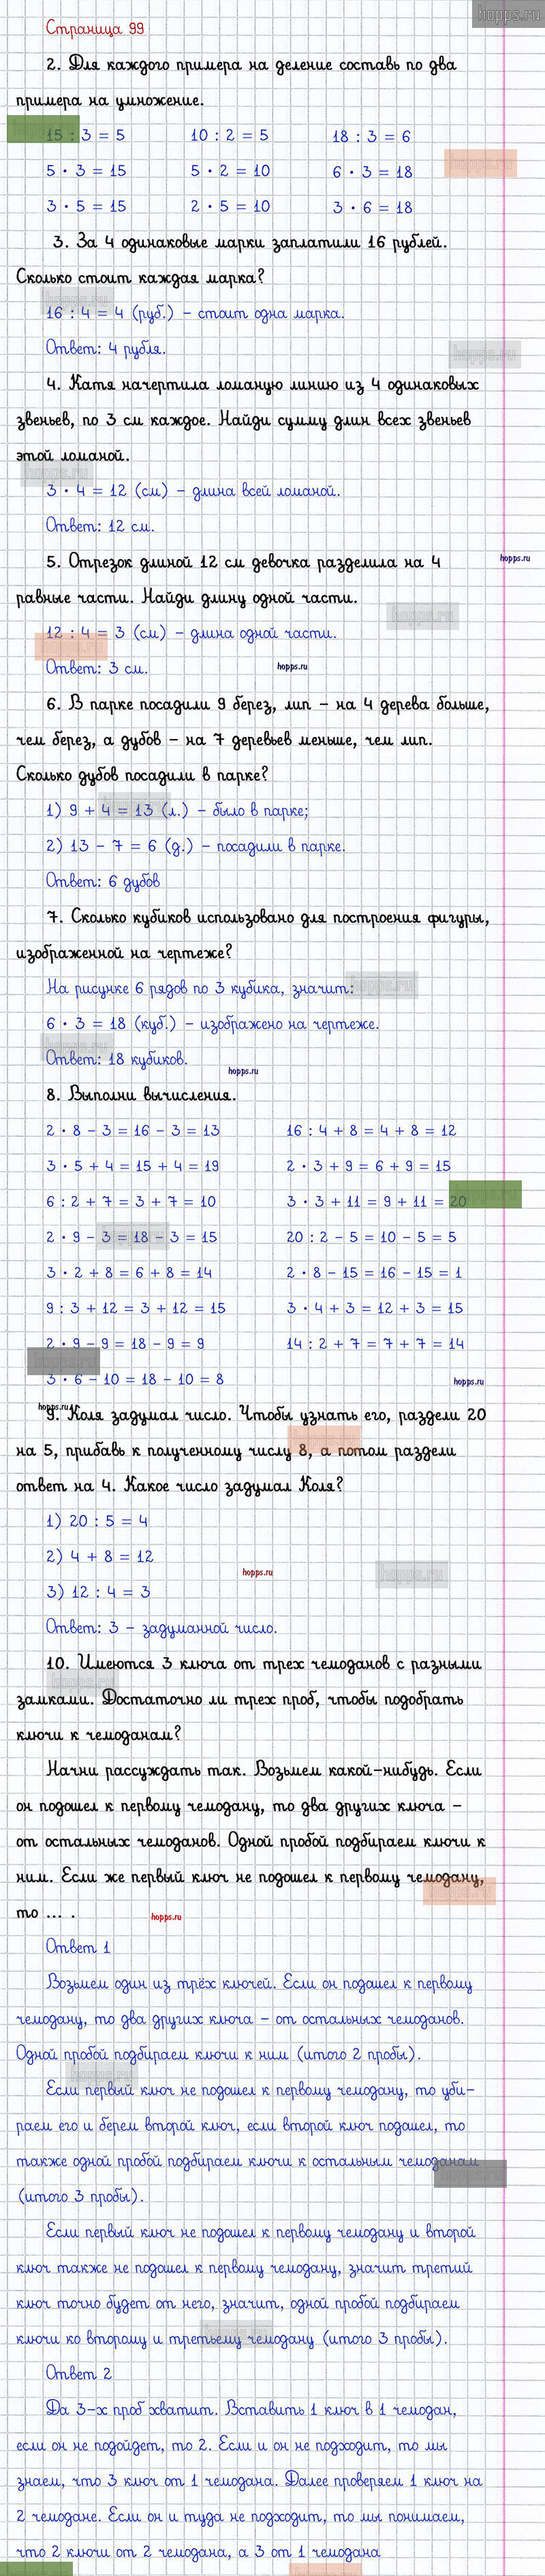 hopps.ru
Страница 99
2. Для каждого примера на деление составь по два
примера на умножение.
15 : 3 = 5 10 : 2 = 5 18 : 3 = 6
hopps.ru
5 · 3 = 15 5 · 2 = 10 6 · 3 = 18
3 · 5 = 15 2 · 5 = 10 3 · 6 = 18
3. За 4 одинаковые марки заплатили 16 рублей.
Сколько стоит каждая марка?
hopps.ru
16 : 4 = 4 (руб.) – стоит одна марка.
Ответ: 4 рубля.
hopps.ru
4. Катя начертила ломаную линию из 4 одинаковых
звеньев, по 3 см каждое. Найди сумму длин всех звеньев
этой ломаной.
hopps.ru
3 · 4 = 12 (см) – длина всей ломаной.
Ответ: 12 см.
5. Отрезок длиной 12 см девочка разделила на 4
hopps.ru
равные части. Найди длину одной части.
hopps.ru
12 : 4 = 3 (см) – длина одной части.
hopps.ru
Ответ: 3 см.
hopps.ru
6. В парке посадили 9 берез, лип – на 4 дерева больше,
чем берез, а дубов – на 7 деревьев меньше, чем лип.
Сколько дубов посадили в парке?
1) 9 + 4 = 13 (л.) – было в парке;
2) 13 – 7 = 6 (д.) – посадили в парке.
Ответ: 6 дубов
7. Сколько кубиков использовано для построения фигуры,
изображенной на чертеже?
На рисунке 6 рядов по 3 кубика, значит:
hopps.ru
6 · 3 = 18 (куб.) – изображено на чертеже.
hopps.ru
Ответ: 18 кубиков.
hopps.ru
8. Выполни вычисления.
2 · 8 – 3 = 16 – 3 = 13 16 : 4 + 8 = 4 + 8 = 12
3 · 5 + 4 = 15 + 4 = 19 2 · 3 + 9 = 6 + 9 = 15
6 : 2 + 7 = 3 + 7 = 10 3 · 3 + 11 = 9 + 11 = 20
2 · 9 – 3 = 18 – 3 = 15 20 : 2 – 5 = 10 – 5 = 5
3 · 2 + 8 = 6 + 8 = 14 2 · 8 – 15 = 16 – 15 = 1
9 : 3 + 12 = 3 + 12 = 15 3 · 4 + 3 = 12 + 3 = 15
2 · 9 – 9 = 18 – 9 = 9 14 : 2 + 7 = 7 + 7 = 14
3 · 6 – 10 = 18 – 10 = 8
hopps.ru
hopps.ru
9. Коля задумал число. Чтобы узнать его, раздели 20
на 5, прибавь к полученному числу 8, а потом раздели
ответ на 4. Какое число задумал Коля?
1) 20 : 5 = 4
2) 4 + 8 = 12
hopps.ru
hopps.ru
3) 12 : 4 = 3
Ответ: 3 – задуманной число.
10. Имеются 3 ключа от трех чемоданов с разными
замками. Достаточно ли трех проб, чтобы подобрать
ключи к чемоданам?
Начни рассуждать так. Возьмем какой-нибудь. Если
он подошел к первому чемодану, то два других ключа –
от остальных чемоданов. Одной пробой подбираем ключи к
ним. Если же первый ключ не подошел к первому чемодану,
то ... .
hopps.ru
Ответ 1
Возьмем один из трёх ключей. Если он подошел к первому
чемодану, то два других ключа – от остальных чемоданов.
Одной пробой подбираем ключи к ним (итого 2 пробы).
hopps.ru
Если первый ключ не подошел к первому чемодану, то уби-
раем его и берем второй ключ, если второй ключ подошел, то
также одной пробой подбираем ключи к остальным чемоданам
(итого 3 пробы).
Если первый ключ не подошел к первому чемодану и второй
ключ также не подошел к первому чемодану, значит третий
ключ точно будет от него, значит, одной пробой подбираем
ключи ко второму и третьему чемодану (итого 3 пробы).
Ответ 2
Да 3-х проб хватит. Вставить 1 ключ в 1 чемодан,
если он не подойдет, то 2. Если и он не подходит, то мы
знаем, что 3 ключ от 1 чемодана. Далее проверяем 1 ключ на
2 чемодане. Если он и туда не подходит, то мы понимаем,
что 2 ключи от 2 чемодана, а 3 от 1 чемодана